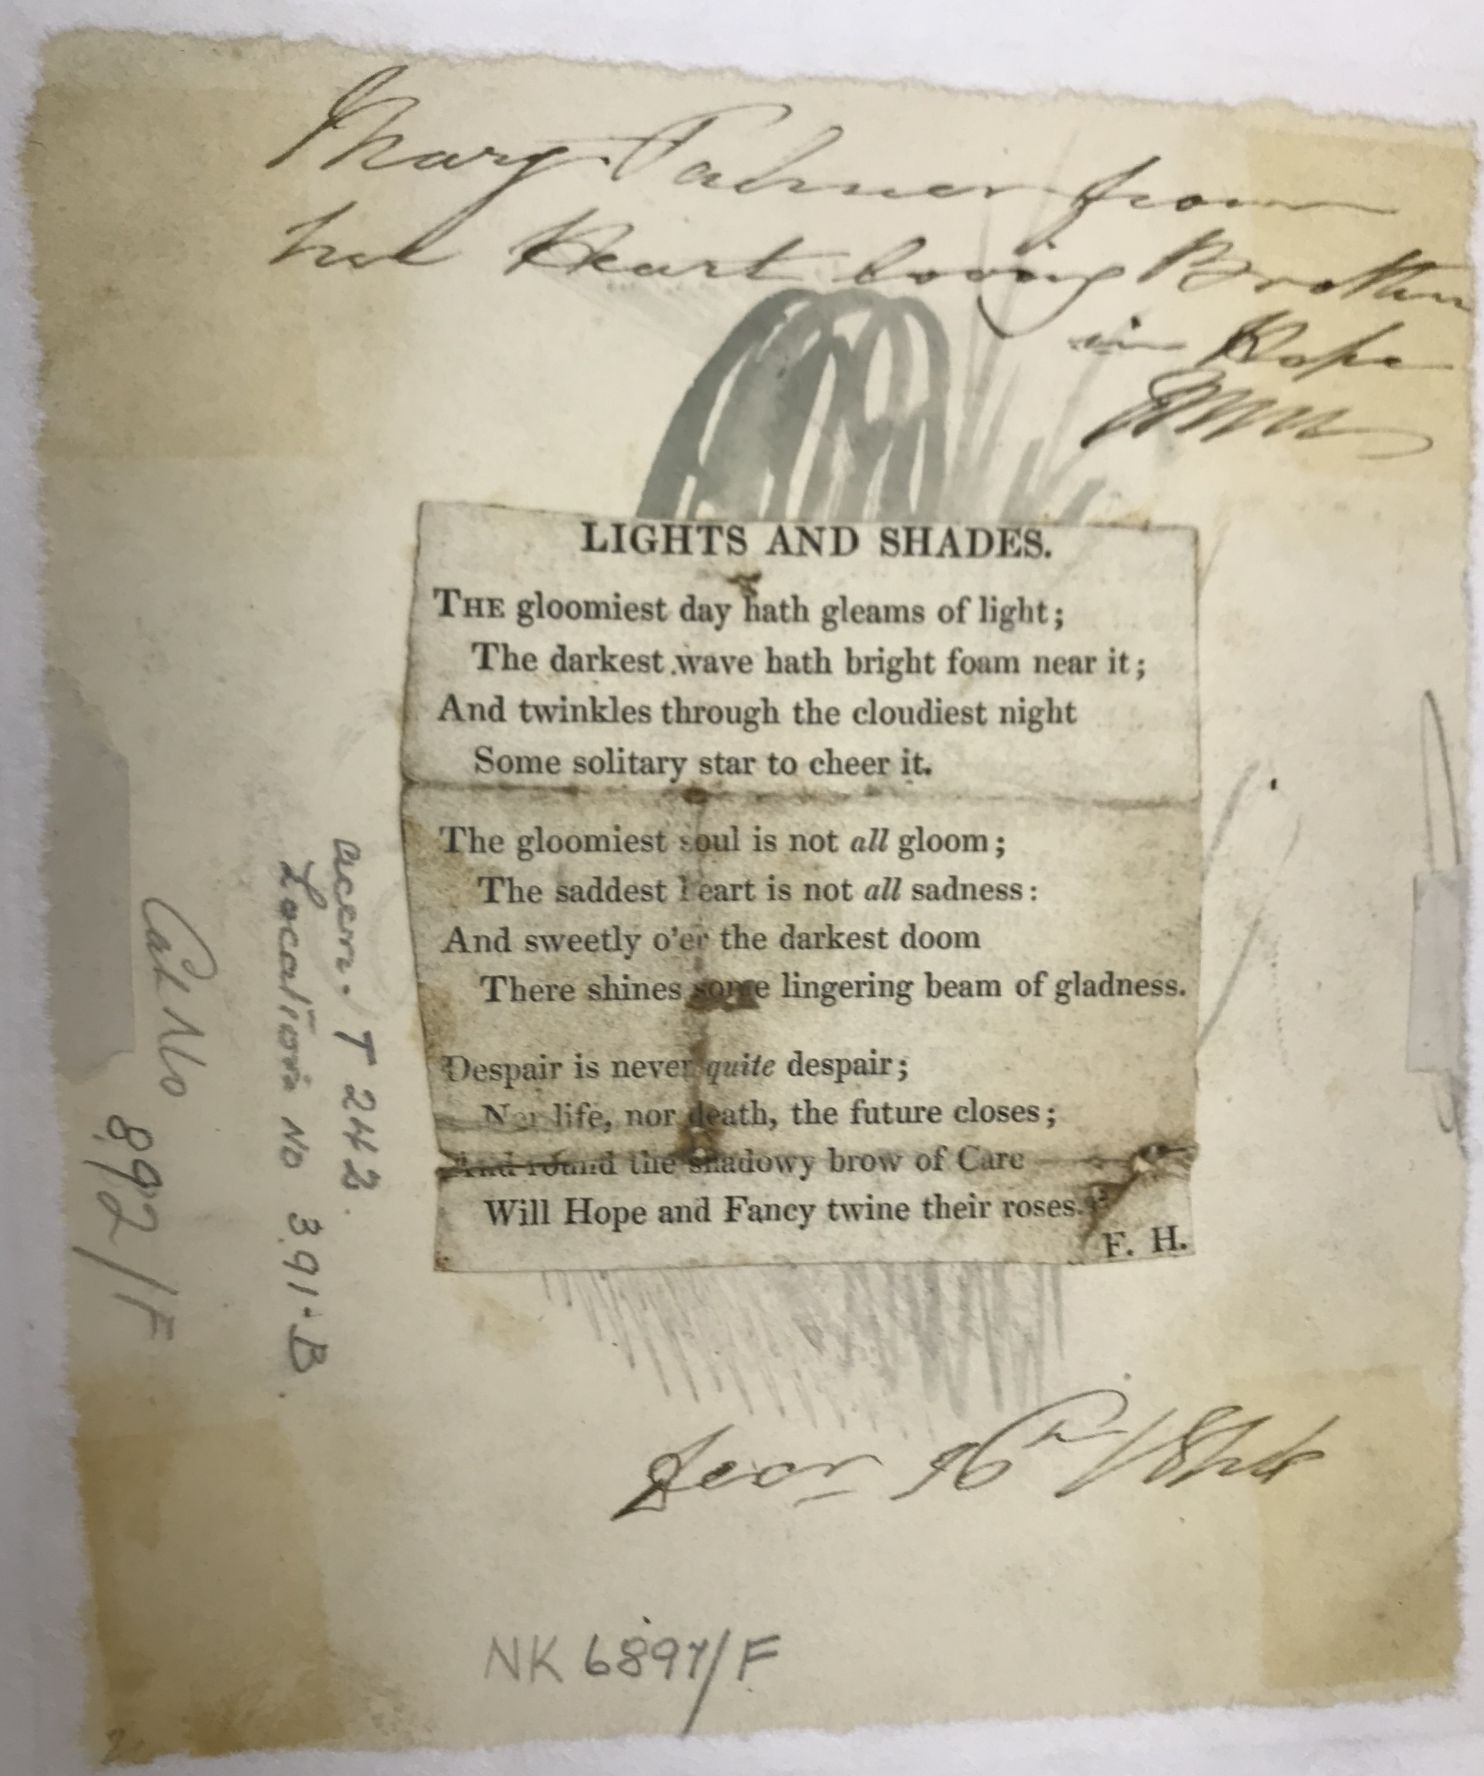 Mary Palmer from
her Heart loving Brother
in Hope
LIGHTS AND SHADES.
THE gloomiest day hath gleams of light;
The darkest wave hath bright foam near it;
And twinkles through the cloudiest night
Some solitary star to cheer it.
The gloomiest soul is not all gloom;
The saddest heart is not all sadness:
And sweetly o'er the darkest doom
There shines some lingering beam of gladness.
Despair is never quite despair;
Nor life, nor death, the future closes;
And round the shadowy brow of Care
Will Hope and Fancy twine their roses.
F. H.
16th
NK 6897/F
accm. T 242
Location No 391-B.
Cat No 892/F